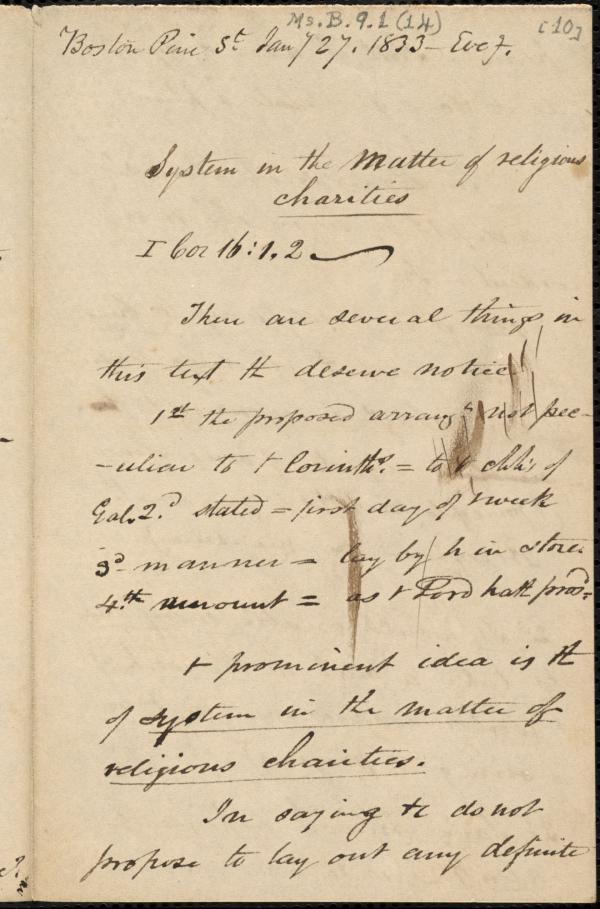 Ms. B. 9.1 (14) [10]
Boston Pine St Jany 27. 1833 - Eveg.
System in the Matter of religious
charities
I Cor 16:1.2
There are several things in
this text tt deserve notice
1st the proposed arrangt not pec-
-uliar to t Corinths. = to t chhs of
Gal. 2d stated = first day of t week
3d manner = lay by h in store
4th amount = as t Lord hath prosd =
t prominent idea is tt
of system in the matter of
religious charities.
In saying do not
propose to lay out any definite